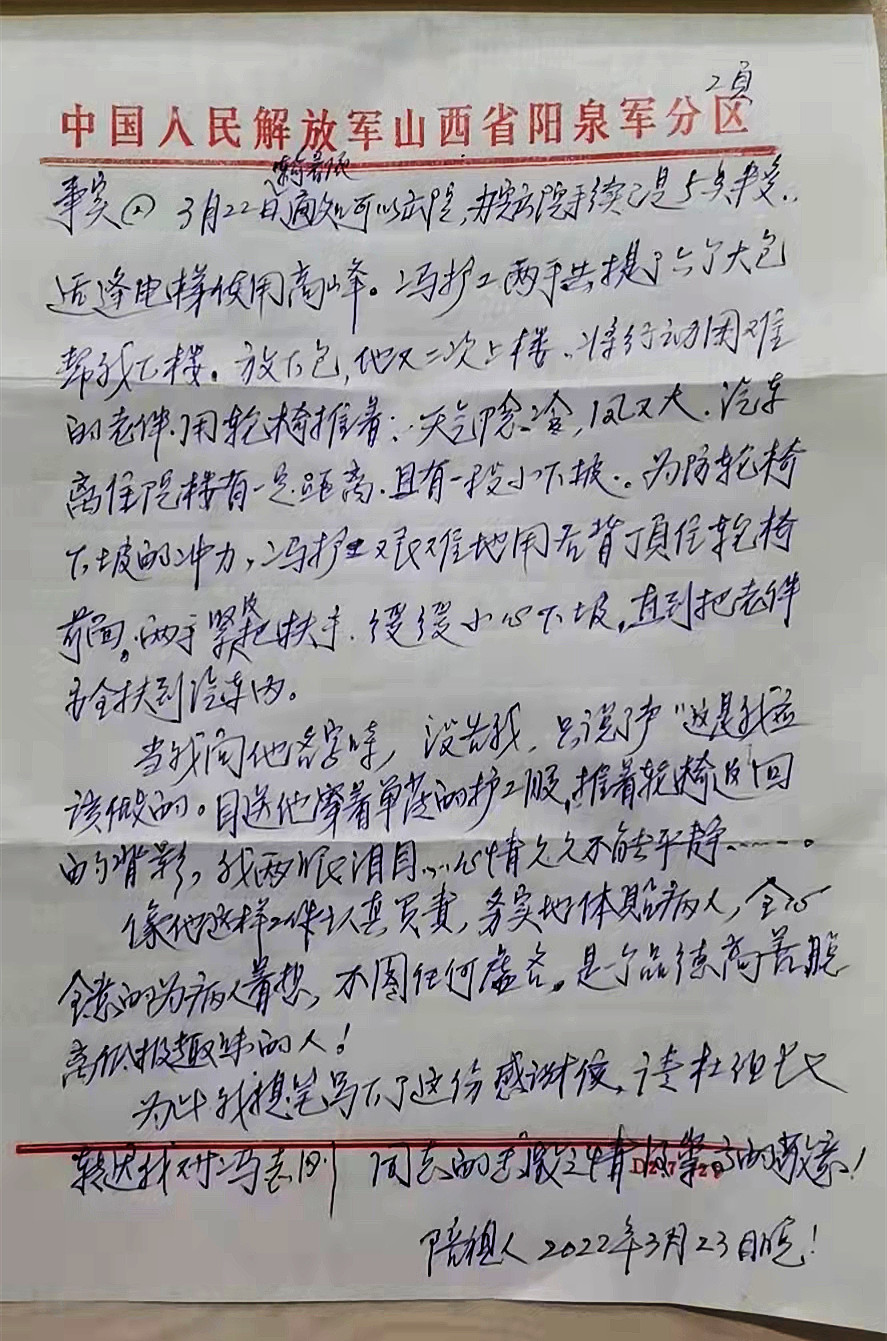 2页
中国人民解放军山西省阳泉军分区
事实(2) 3月22日通知可以出院,办完出院手续已是5点半多.
适逢电梯使用高峰。冯护工两手共提了六个大包
帮我下楼。放下包,他又二次上楼、将行动困难
的老伴.用轮椅推着;天气阴冷,风又大.汽车
离住院楼有一定距离.且有一段小下坡.为防轮椅
下坡的冲力,冯护工艰难地用后背顶住轮椅
前面。两手紧把扶手.缓缓小心下坡,直到把老伴
安全扶到汽车内。
当我问他名字时,没告我,只说了声"这是我应
该做的。目送他穿着单薄的护工服,推着轮椅返回
的背影,我两眼泪目...心情久久不能平静……。
像他这样工作认真负责,务实地体贴病人,全心
全意的为病人着想,不图任何虚名。是个品德高尚脱
离低级趣味的人!
为此我提笔写下了这份感谢信,请杜组长
转达我对冯志刚 同志的感激之情 的敬意!
陪视人 2022年3月23日晚!